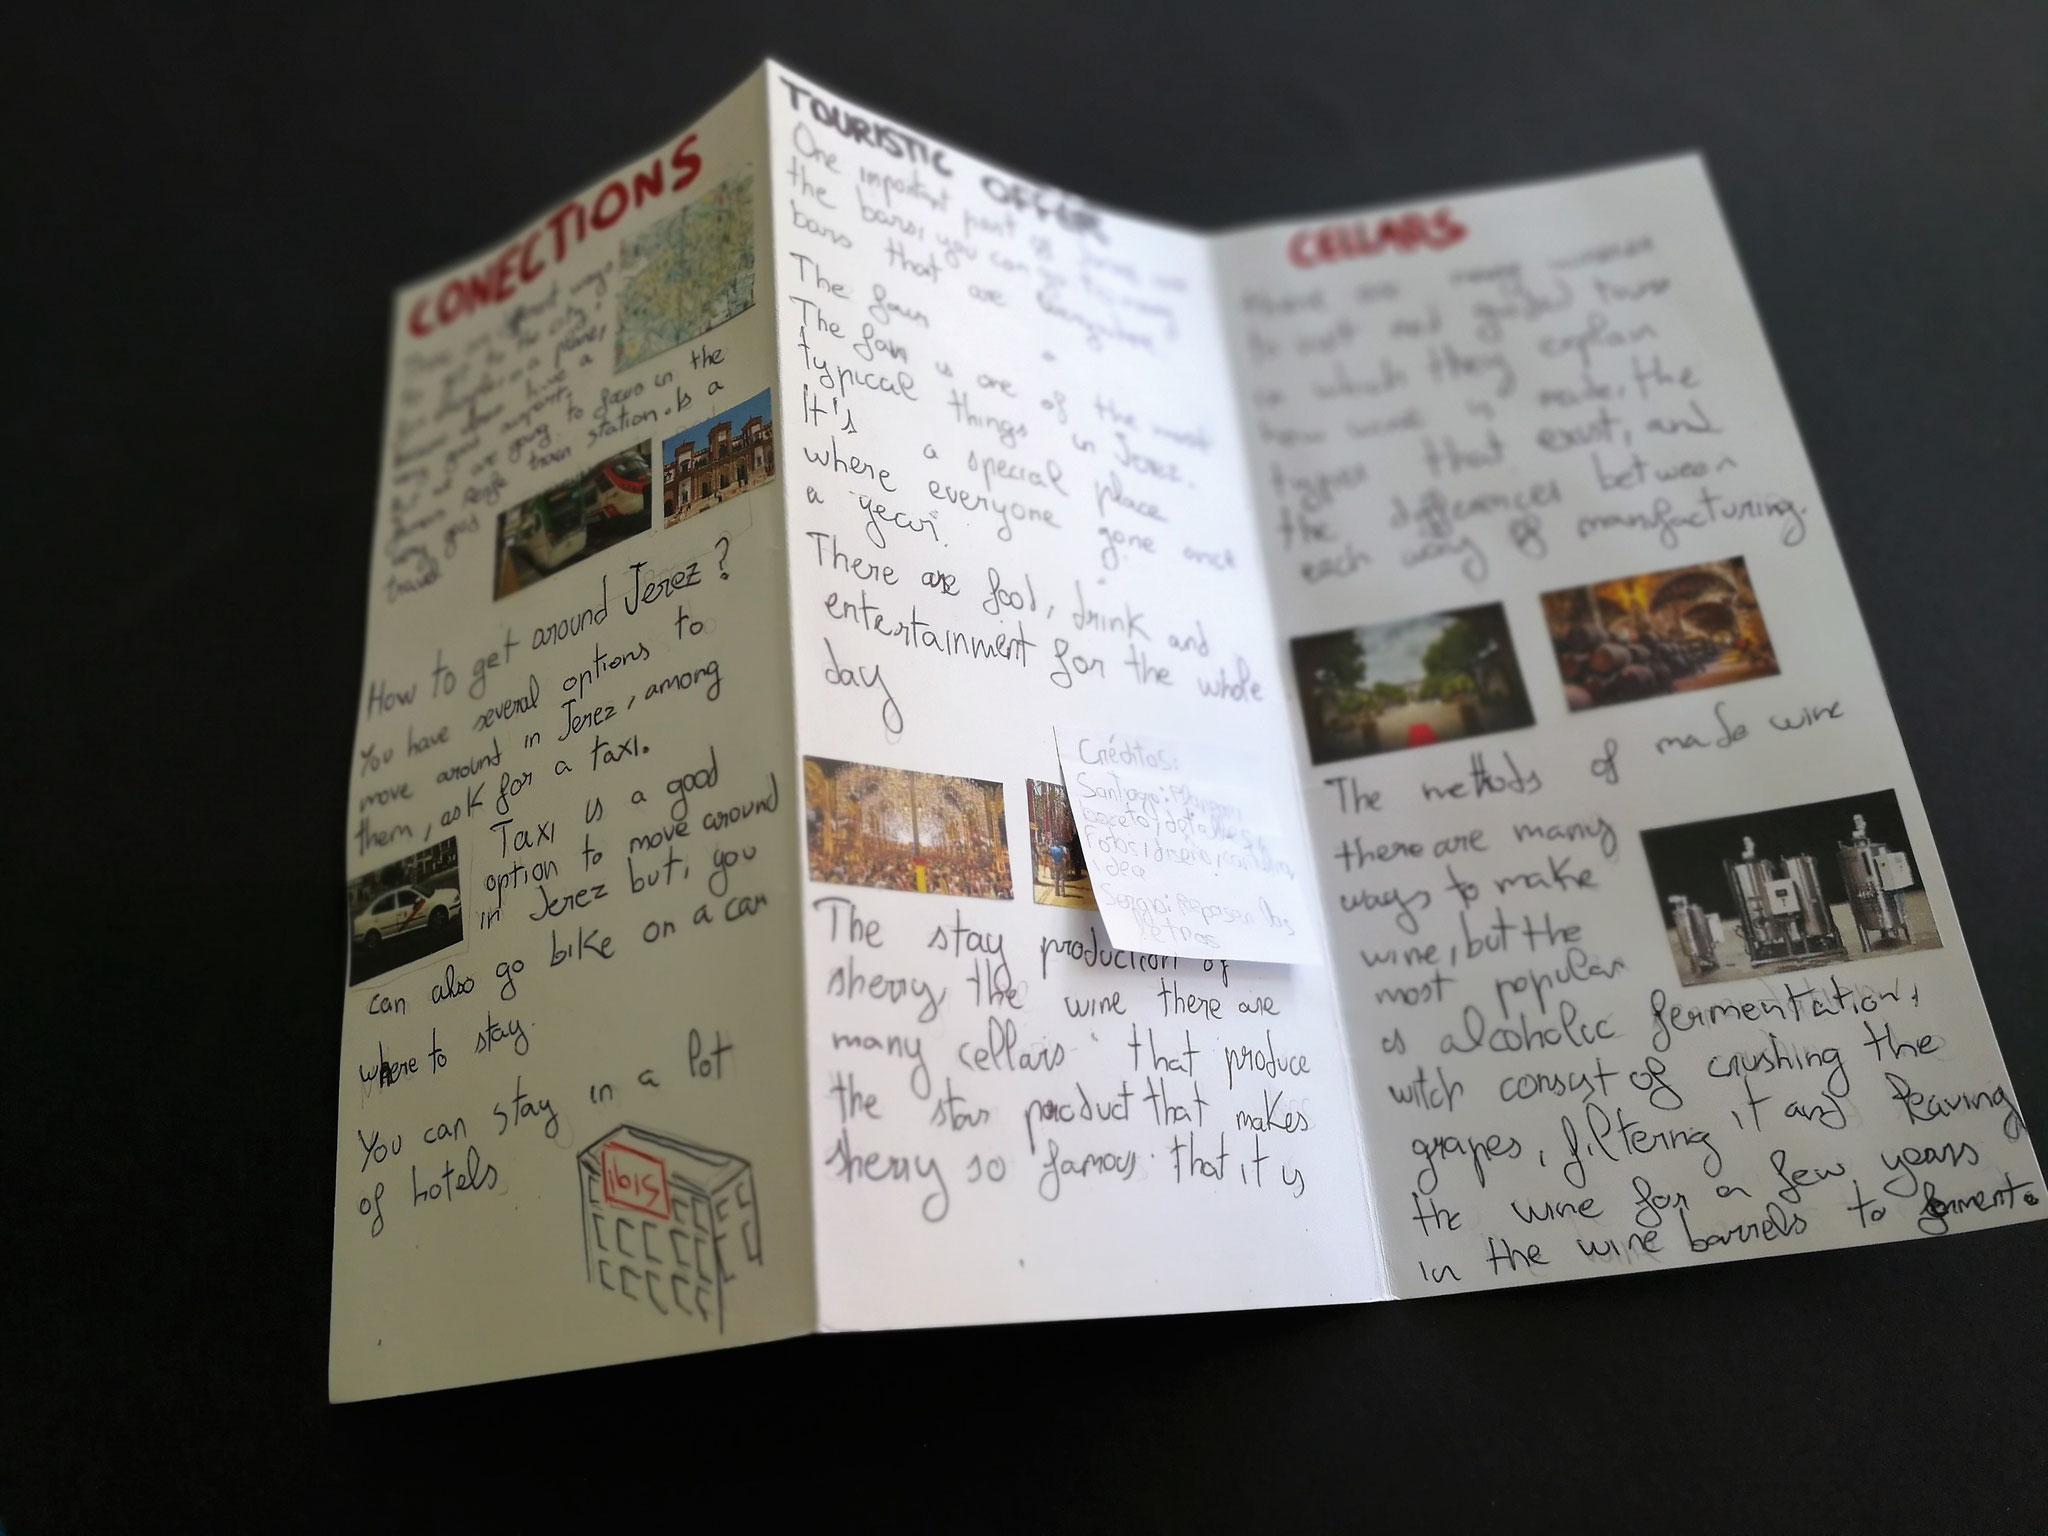 CONECTIONS
There are different ways
to get to the city:
for example in a plane,
because Jerez have a
very good airport.
But we are going to focus in the
famous Renfe train station. Is a
very good
travel
How to get around Jerez?
You have several options to
move around in Jerez, among
them, ask for a taxi.
Taxi is a good
option to move around
in Jerez but, you
can also go bike on a car
where to stay.
You can stay in a lot
of hotels
ibis
TOURISTIC OFFER
One important part of Jerez are
the bars, you can go to many
bars that are
The fair
The fair is one of the most
typical things in Jerez.
It's a special place
where everyone gone once
a year.
There are food, drink and
entertainment for the whole
day
Créditos:
Santiago:
boceto, detalles,
Fotos, diseño,
idea
Sergio: Repasar las
letras
The stay production of
sherry, the wine there are
many cellars that produce
the star product that makes
sherry so famous that it is
CELLARS
There are many
to visit and guided tours
in which they explain
how wine is made, the
types that exist, and
the differences between
each way of manufacturing.
The methods of made wine
there are many
ways to make
wine, but the
most popular
is alcoholic fermentation,
witch consist of crushing the
grapes, filtering it and leaving
the wine for a few years
in the wine barrels to ferment.